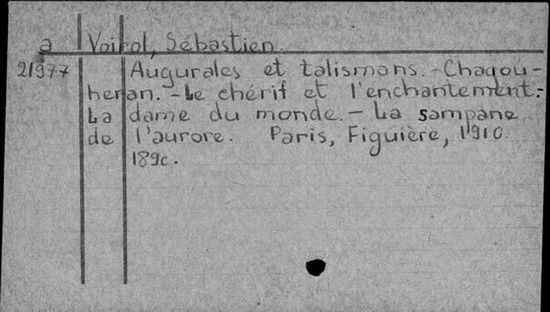 a Voirol, Sébastien.
21977 Augurales et talismans.-Chaqou-
heran.-Le chérif et l'enchantement.-
La dame du monde.- La sampane
de l'aurore. Paris, Figuière, 1910
189c.